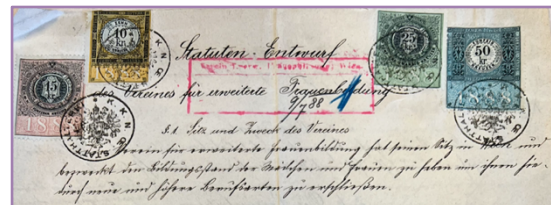 15 kr
10 kr.
25 kr
50 kr.
K. K. N. Oe. STATTHALTEREI
Statuten-Entwurf
des Vereines für erweiterte Frauenbildung
9/7 88
§.1. Sitz und Zweck des Vereines
Verein für erweiterte Frauenbildung hat seinen Sitz in Wien und
bezweckt den Bildungsstand der Mädchen und Frauen zu heben um ihnen
durch neue und höhere Berufsarten zu erschließen.